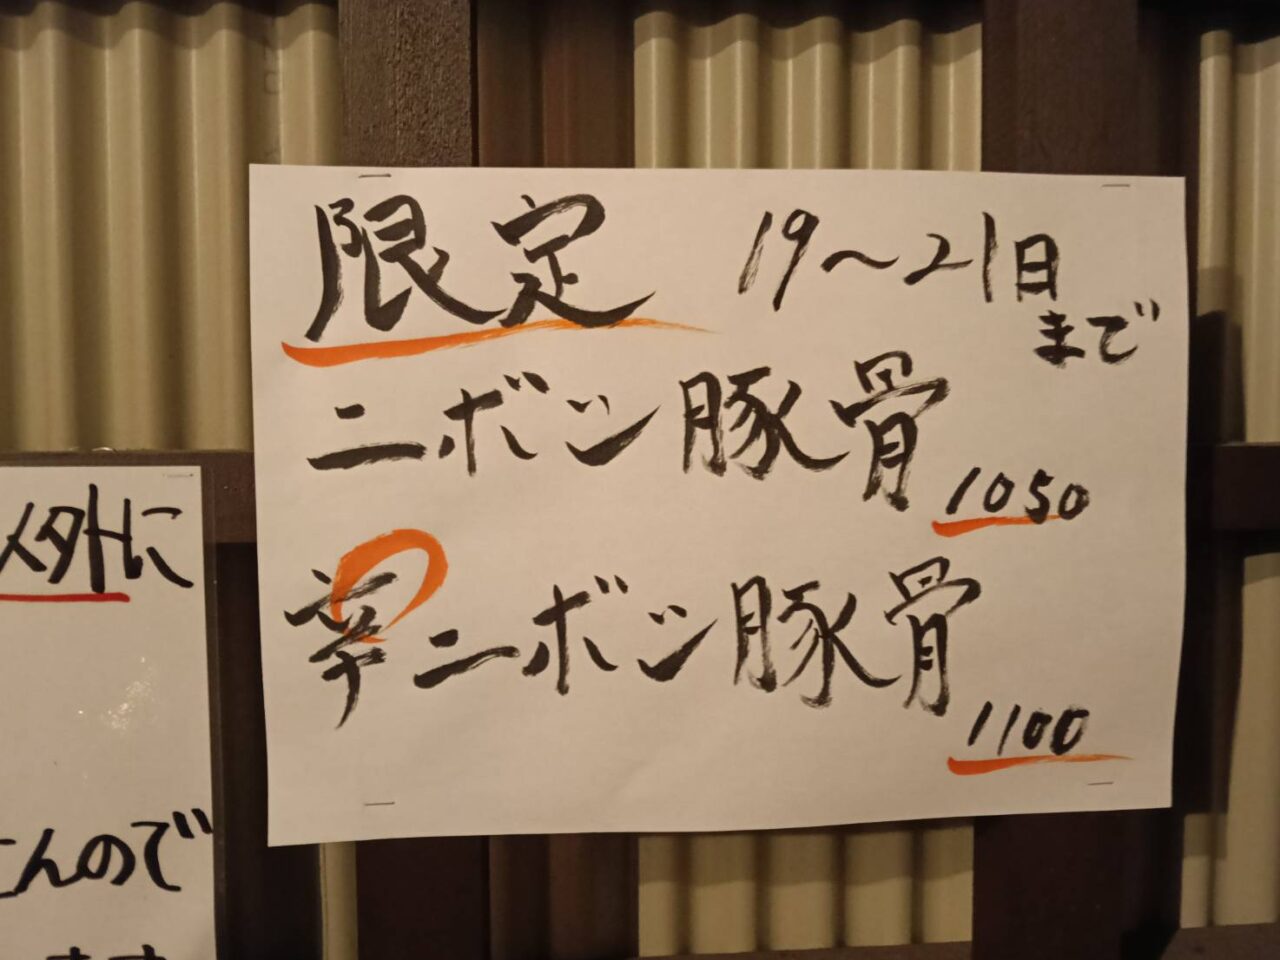 限定 19〜21日
まで
ニボシ豚骨
1050
辛ニボシ豚骨
1100
メ外に
んので